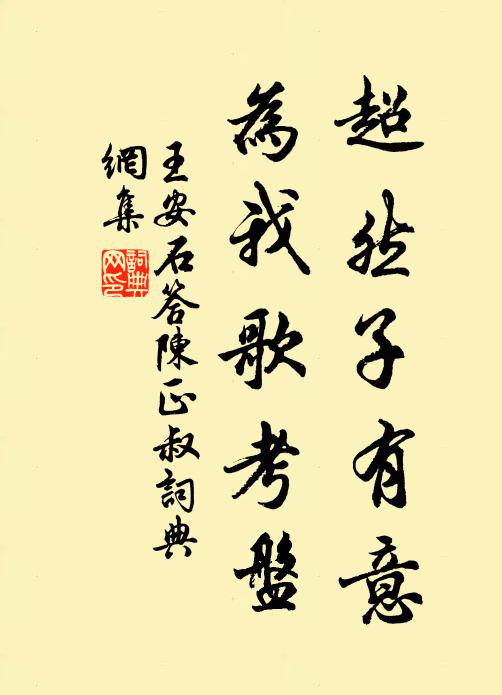 超然子有意
為我歌考盤
王安石答陳正叔詞典
網集
詞典
网印